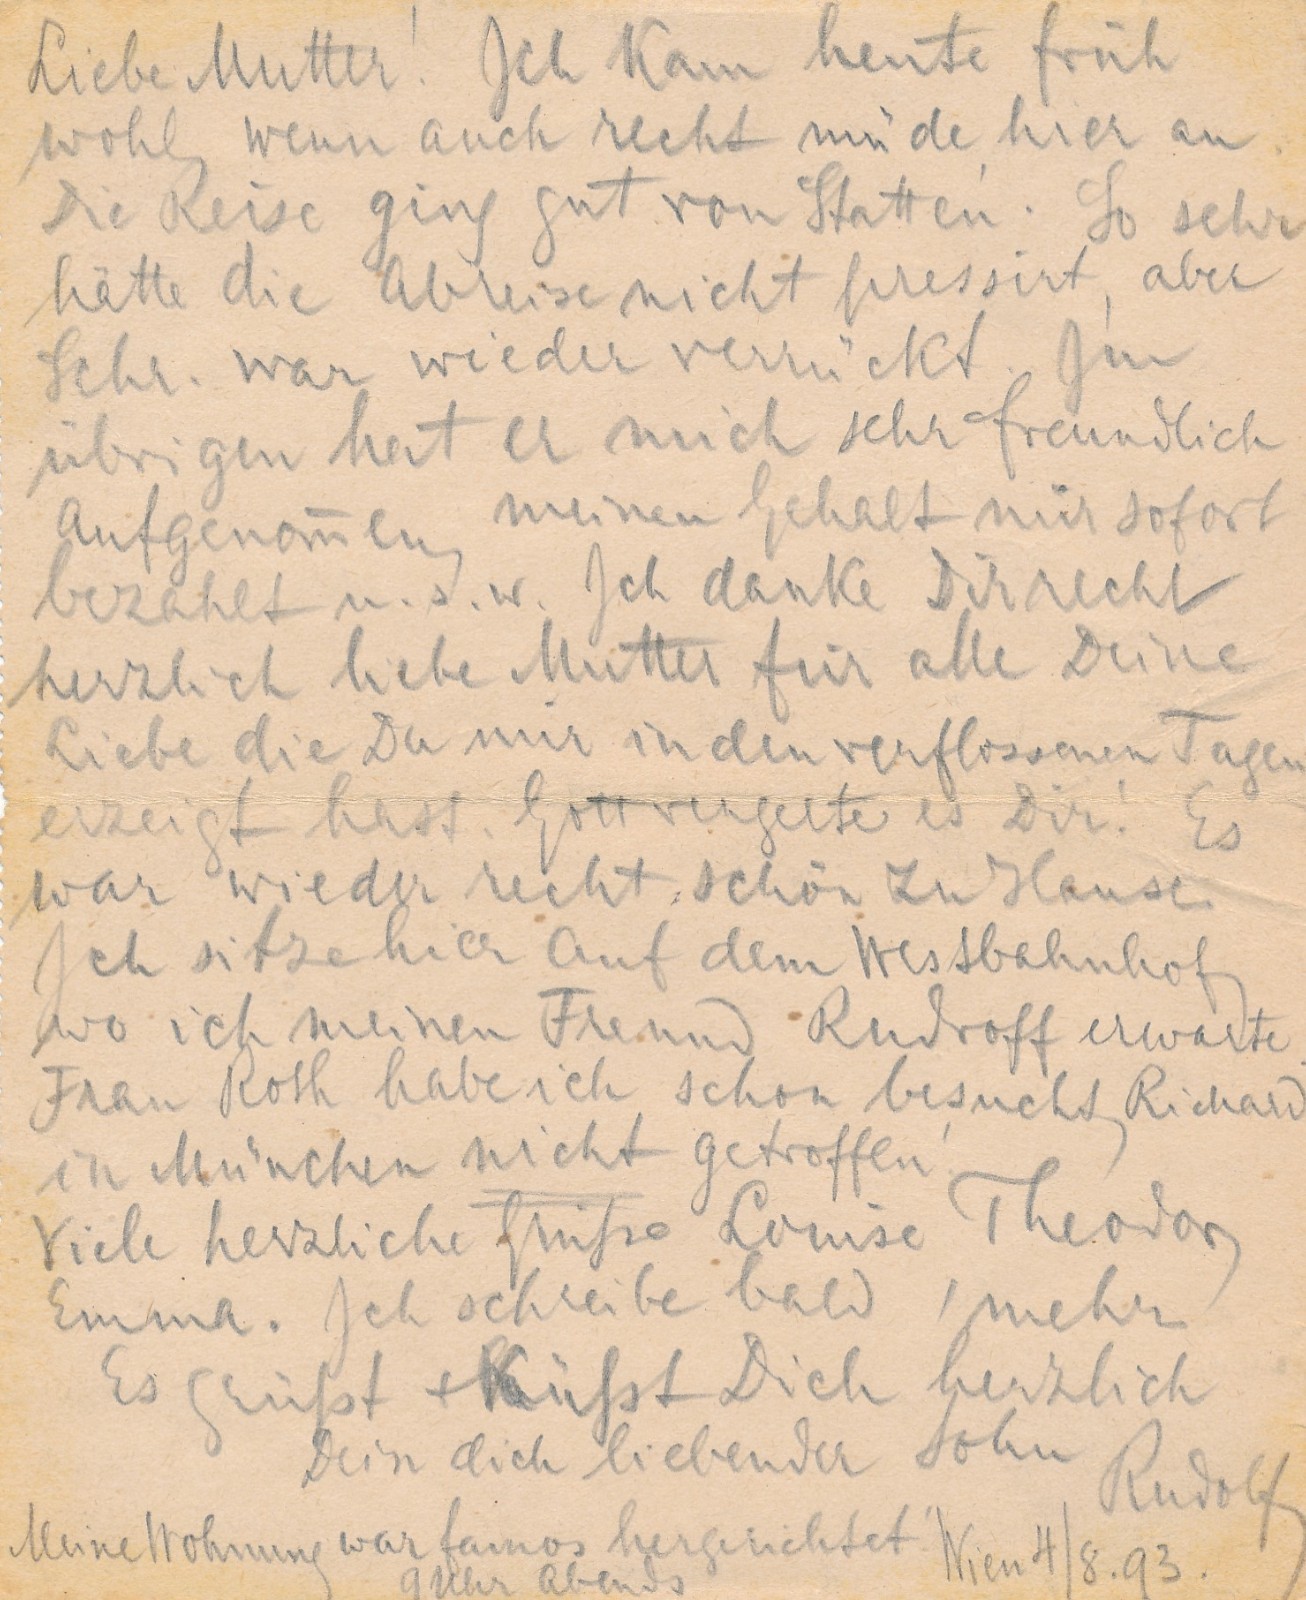 Liebe Mutter! Ich kam heute früh
wohl, wenn auch recht müde, hier an.
Die Reise ging gut von Statten. So sehr
hätte die Abreise nicht pressirt, aber
Sehr. war wieder verrückt. Im
übrigen hat er mich sehr freundlich
aufgenom̅en, meinen Gehalt mir sofort
bezahlt u.s.w. Ich danke Dir recht
herzlich liebe Mutter für alle Deine
Liebe die Du mir in den verflossenen Tagen
erzeigt hast. Gott vergelte es Dir! Es
war wieder recht schön zu Hause.
Ich sitze hier auf dem Westbahnhof,
wo ich meinen Freund Rudroff erwarte.
Frau Roth habe ich schon besucht, Richard
in München nicht getroffen!
Viele herzliche Grüße Louise Theodor,
Emma. Ich schreibe bald mehr
Es grüßt + küßt Dich herzlich
Dein dich liebender Sohn
Rudolf,
Meine Wohnung war famos hergerichtet! Wien 4/8.93.
9 Uhr Abends